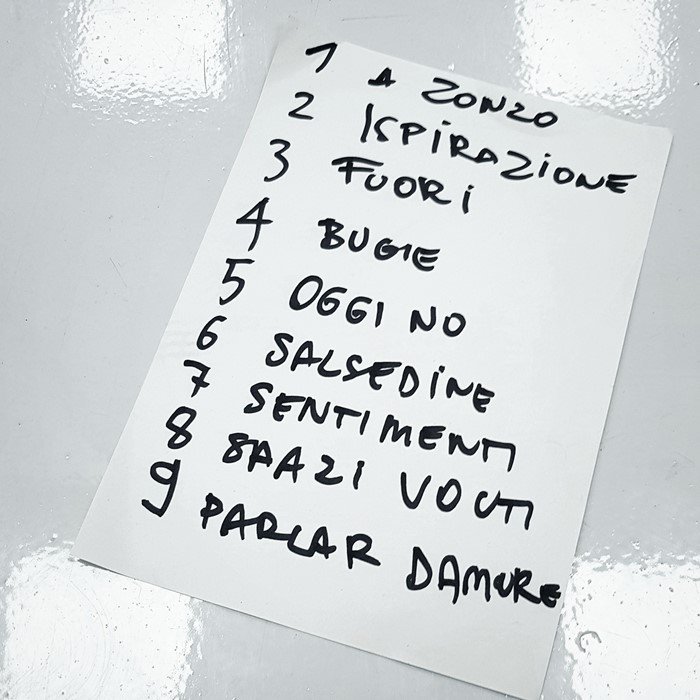 1 A ZONZO
2 ISPIRAZIONE
3 FUORI
4 BUGIE
5 OGGI NO
6 SALSEDINE
7 SENTIMENTI
8 SPAZI VUOTI
9 PARLAR DAMORE